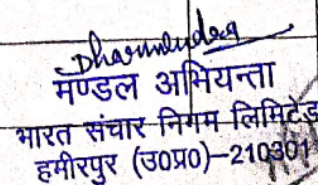 Dharmendra
मण्डल अभियन्ता
भारत संचार निगम लिमिटेड
हमीरपुर (उ0प्र0)–210301